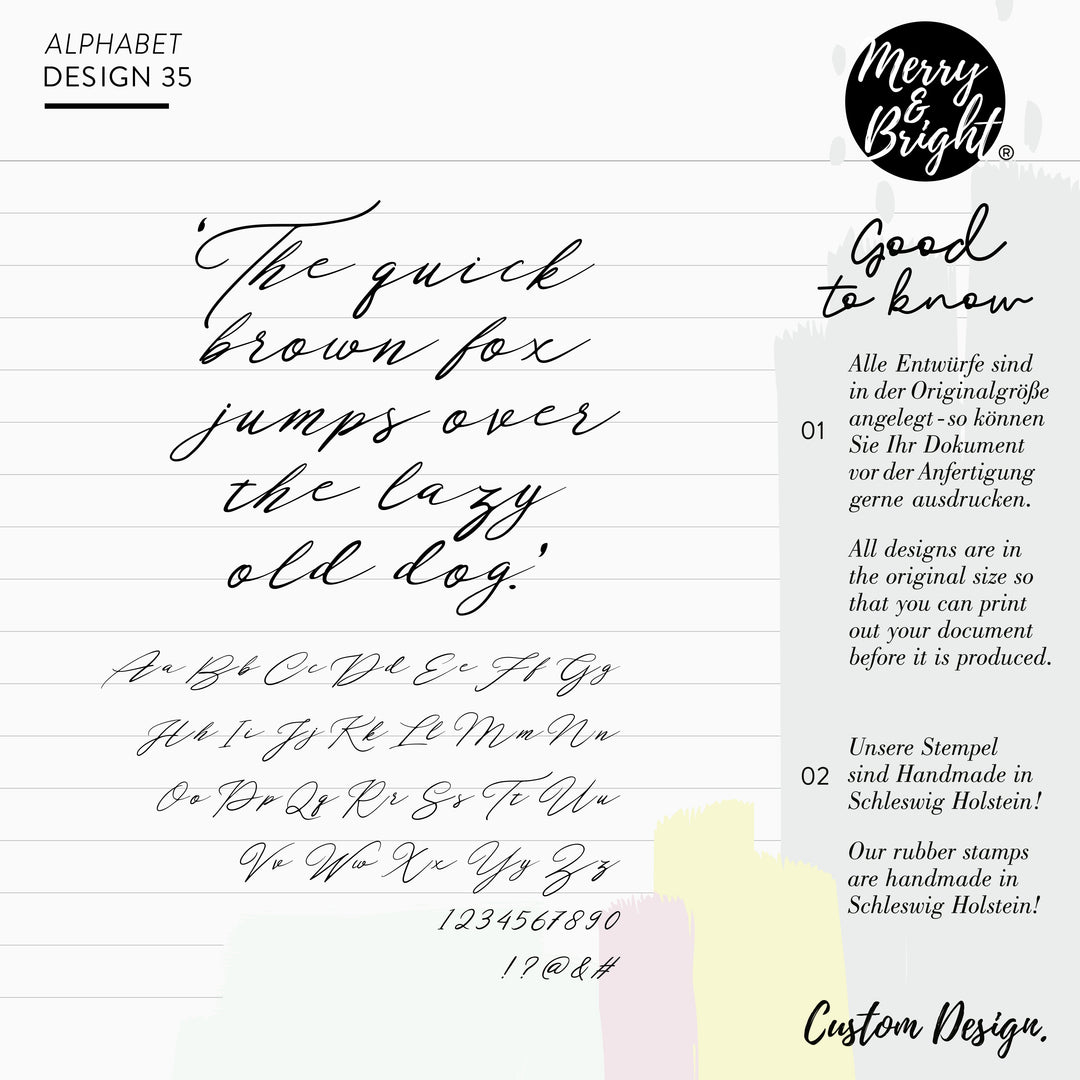 ALPHABET
DESIGN 35
Merry
&
Bright®
'The quick
brown fox
jumps over
the lazy
old dog.'
Aa Bb Cc Dd Ee Ff Gg
Hh Ii Jj Kk Ll Mm Nn
Oo Pp Qq Rr Ss Tt Uu
Vv Ww Xx Yy Zz
1234567890
!?@&#
Good
to know
01
Alle Entwürfe sind
in der Originalgröße
angelegt - so können
Sie Ihr Dokument
vor der Anfertigung
gerne ausdrucken.
All designs are in
the original size so
that you can print
out your document
before it is produced.
02
Unsere Stempel
sind Handmade in
Schleswig Holstein!
Our rubber stamps
are handmade in
Schleswig Holstein!
Custom Design.